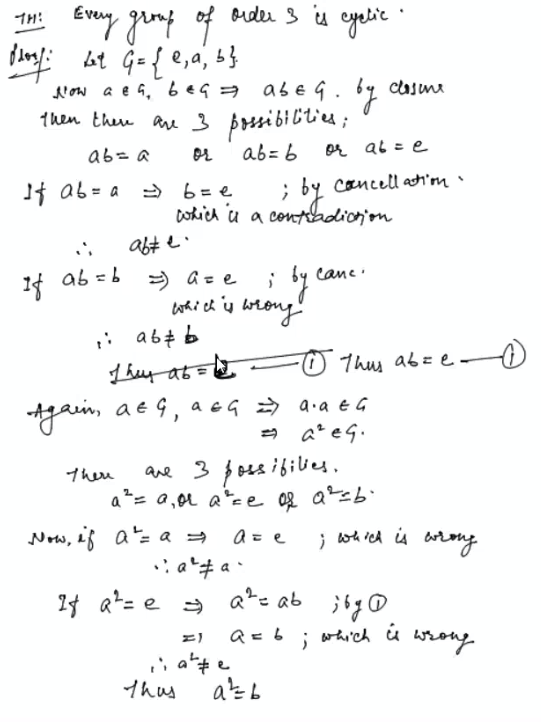 TH: Every group of order 3 is cyclic.
Proof: Let G = { e, a, b }
Now a ∈ G, b ∈ G ⇒ ab ∈ G. by closure
Then there are 3 possibilities;
ab = a or ab = b or ab = e
If ab = a ⇒ b = e ; by cancellation.
which is a contradiction
∴ ab ≠ e.
If ab = b ⇒ a = e ; by canc.
which is wrong
∴ ab ≠ b
Thus ab = e — ① Thus ab = e — ①
Again, a ∈ G, a ∈ G ⇒ a·a ∈ G
⇒ a² ∈ G.
There are 3 possibilies.
a² = a, or a² = e or a² = b.
Now, if a² = a ⇒ a = e ; which is wrong
∴ a² ≠ a.
If a² = e ⇒ a² = ab ; by ①
⇒ a = b ; which is wrong
∴ a² ≠ e
Thus a² = b